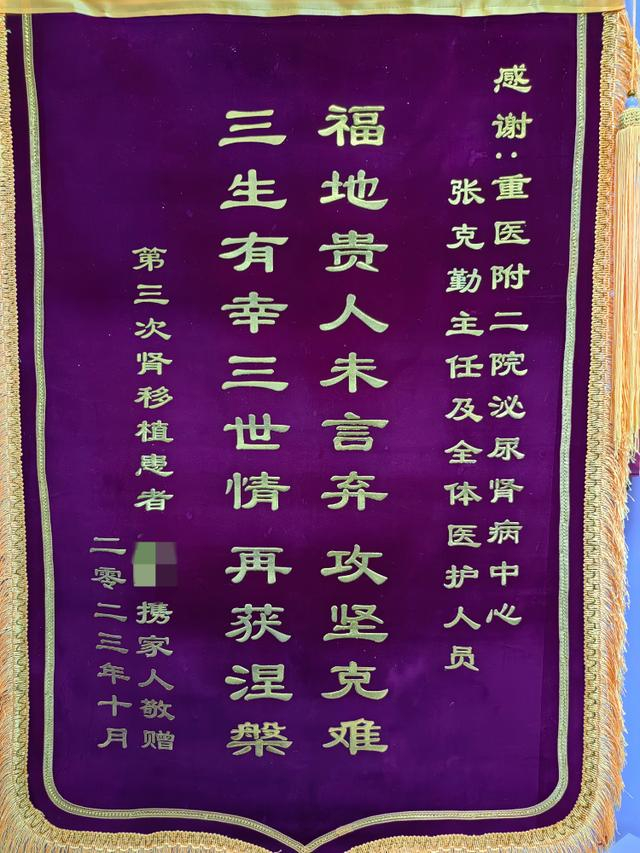 感谢:重医附二院泌尿肾病中心
张克勤主任及全体医护人员
福地贵人未言弃 攻坚克难
三生有幸三世情 再获涅槃
第三次肾移植患者 携家人敬赠
二零二三年十月